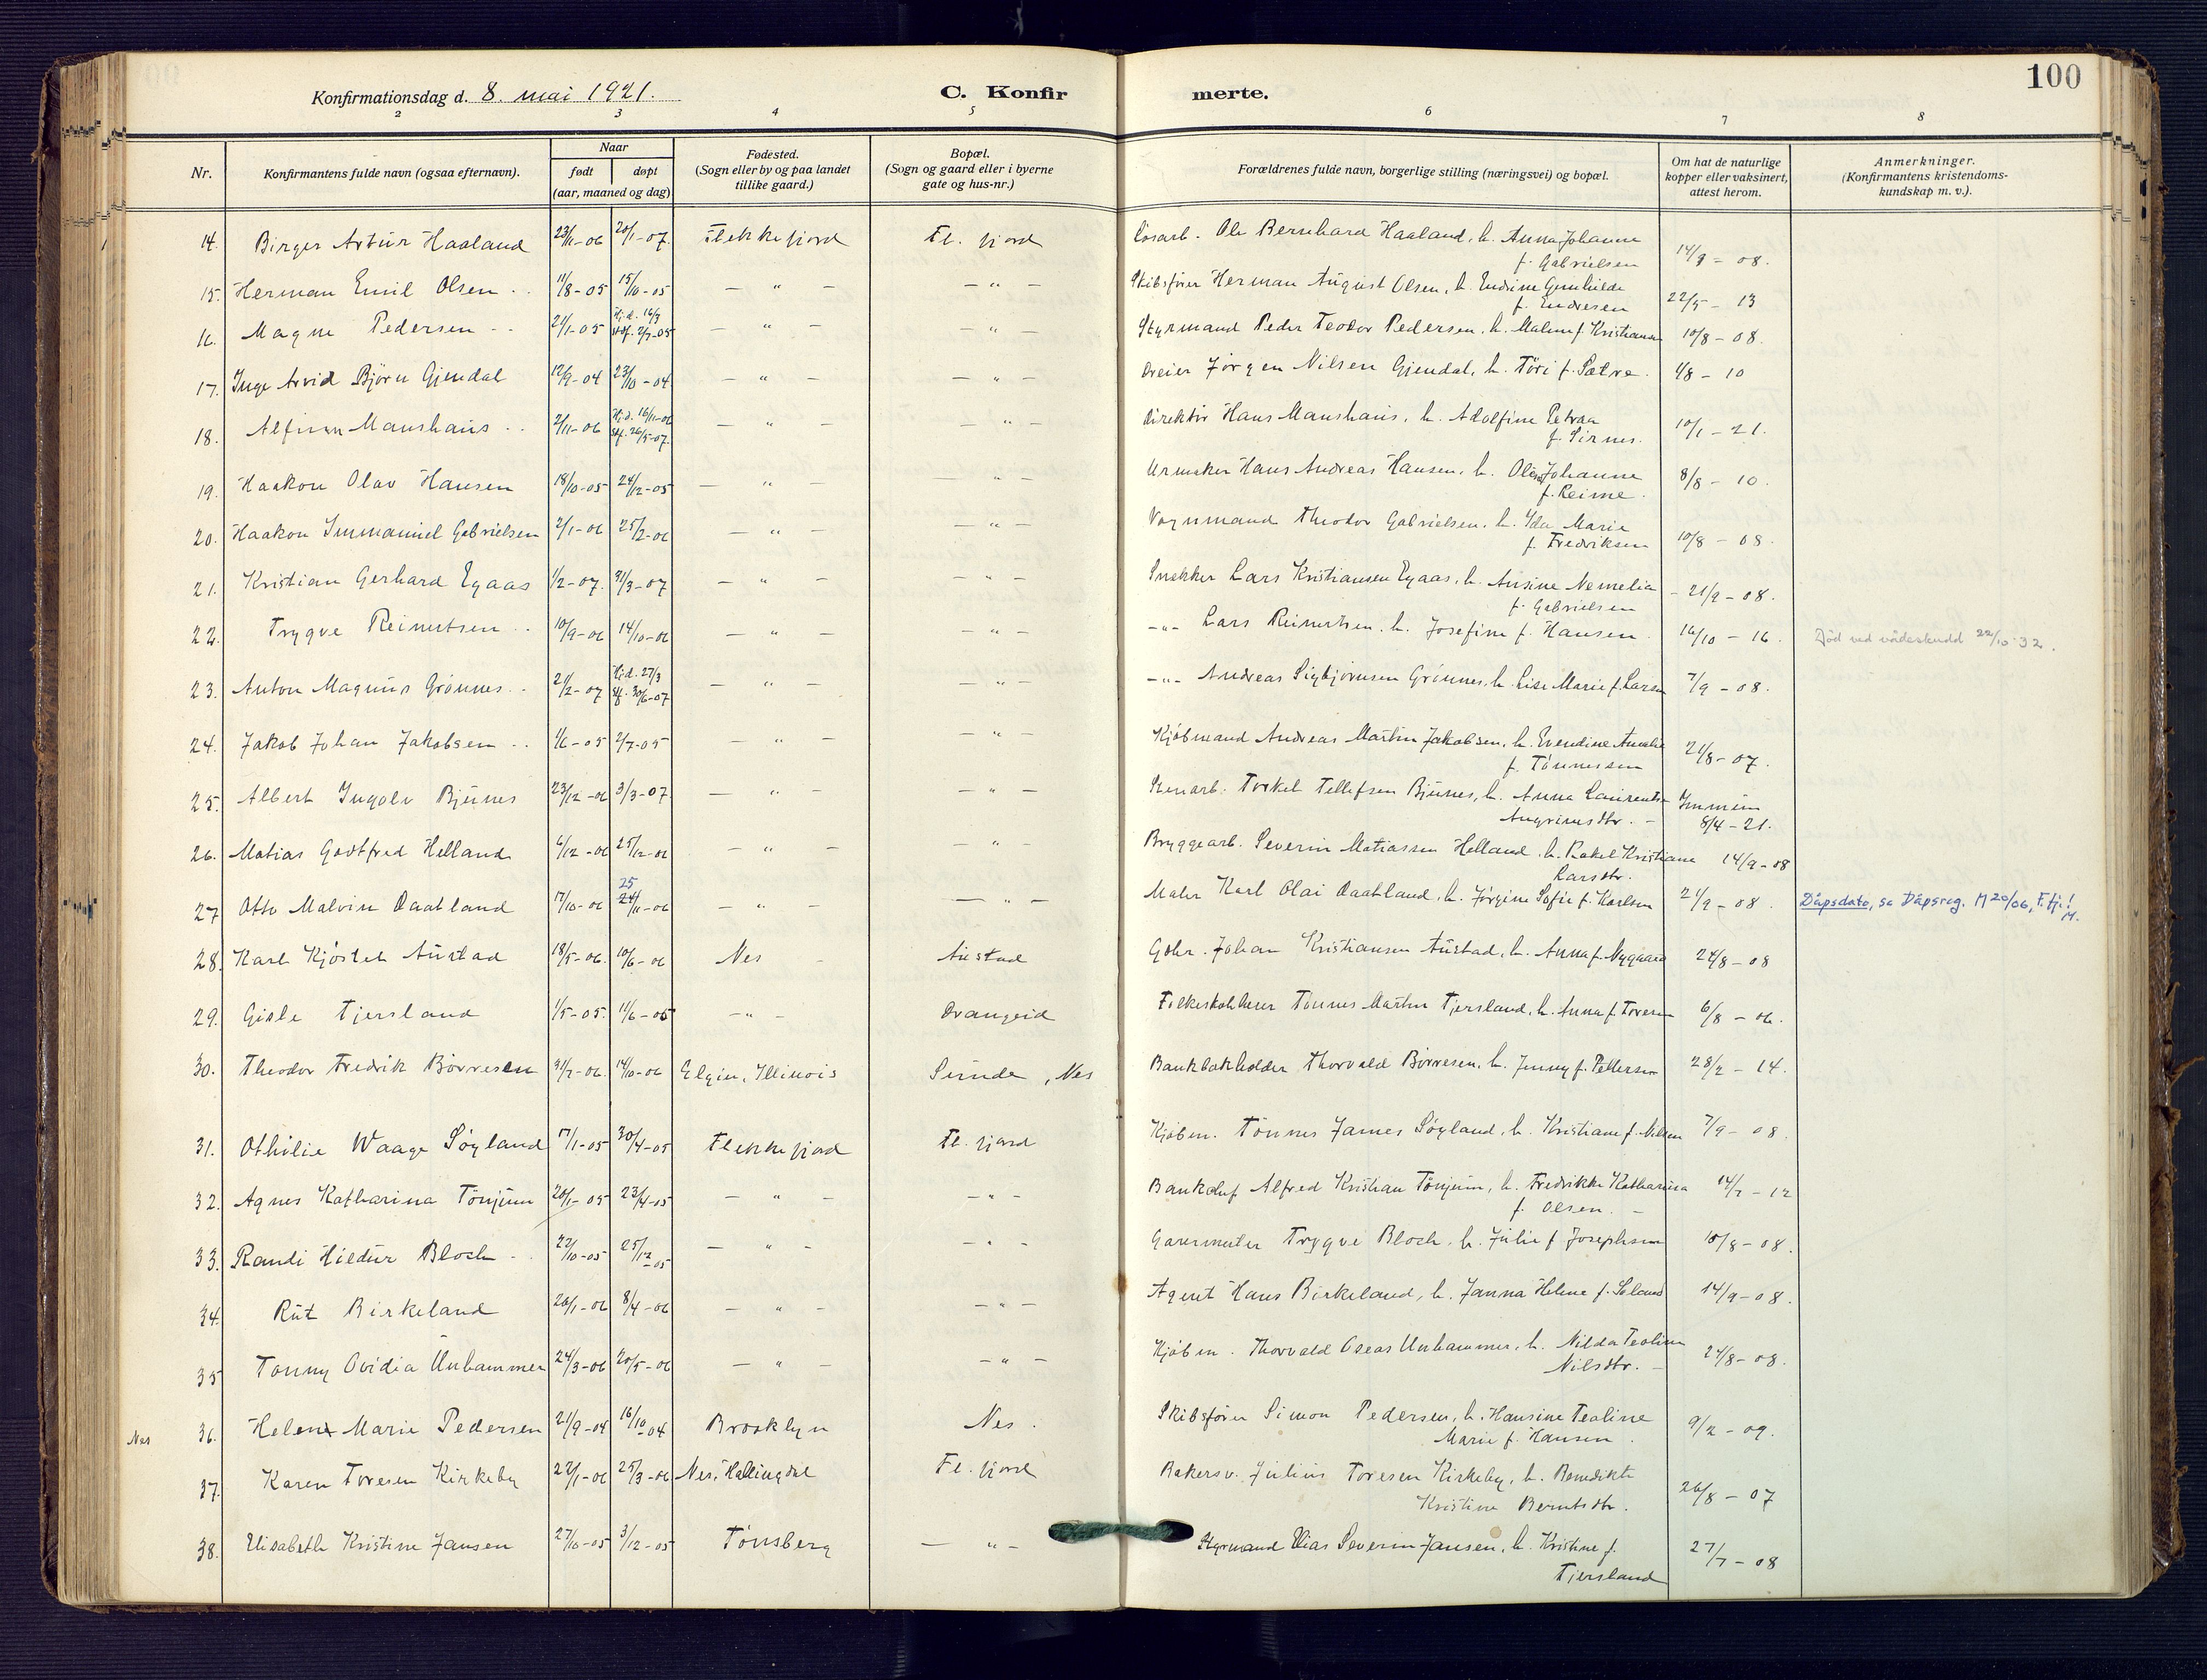 100
Konfirmationsdag d. 8. mai 1921.
C. Konfirmerte.
2 3 4 5 6 7 8
Nr.
Konfirmantens fulde navn (ogsaa efternavn).
Naar
født døpt
(aar, maaned og dag)
Fødested.
(Sogn eller by og paa landet
tillike gaard.)
Bopæl.
(Sogn og gaard eller i byerne
gate og hus-nr.)
Forældrenes fulde navn, borgerlige stilling (næringsvei) og bopæl.
Om hat de naturlige
kopper eller vaksinert,
attest herom.
Anmerkninger.
(Konfirmantens kristendoms-
kundskap m. v.).
14. Birger Artur Haaland 23/11-06 20/1-07. Flekkefjord Fl. fjord Ole Bernhard Haaland, h. Anna Johanne 14/9 - 08.
f. Gabrielsen
15. Herman Emil Olsen 11/8-05 15/10-05 — " — — " — Skibsfører Herman August Olsen, h. Endrine Gunhilde 22/5 - 13
f. Endresen
16. Magne Pedersen 21/1-05 Hj.d. 16/3 stf. 2/7-05 — " — — " — Styrmand Peder Teodor Pedersen, h. Malene f. Kristiansen 10/8 - 08.
17. Inge Arvid Bjørn Gjendal 12/9-04 23/10-04 — " — — " — Dreier Jørgen Nilsen Gjendal, h. Tori f. Sætre. 4/8 - 10
18. Alfinn Maushaus 2/11-06 Hj.d. 16/11-06 stf. 26/5-07. — " — — " — Direktør Hans Maushaus, h. Adolfine Petraa 10/1 - 21.
f. Sirnes.
19. Haakon Olav Hansen 18/10-05 24/12-05 — " — — " — Urmaker Hans Andreas Hansen, h. Olene Johanne 8/8 - 10.
f. Reime.
20. Haakon Immanuel Gabrielsen 2/1-06 25/2-06 — " — — " — Vognmand Theodor Gabrielsen, h. Ida Marie 10/8 - 08.
f. Fredriksen
21. Kristian Gerhard Egaas 1/2-07. 31/3-07 — " — — " — Snekker Lars Kristiansen Egaas, h. Ansine Nemelia 21/9 - 08.
f. Gabrielsen
22. Trygve Reinertsen 10/9-06 14/10-06 — " — — " — -"- Lars Reinertsen, h. Josefine f. Hansen 16/10 - 16. Død ved vådeskudd 22/10-32.
23. Anton Magnus Grønnes 21/2-07 Hj.d. 27/3 stf. 30/6-07 — " — — " — -"- Andreas Sigbjørnsen Grønnes, h. Lise Marie f. Larsen 7/9 - 08.
24. Jakob Johan Jakobsen 1/6-05 2/7-05 — " — — " — Kjøbmand Andreas Martin Jakobsen, h. Evendine Amalie 21/8 - 07.
f. Tønnessen
25. Albert Ingolv Bjunes 23/12-06 3/3-07. — " — — " — Torkel Tellefsen Bjunes, h. Anna Laurentse Immun
Angrimsdtr. 8/4-21.
26. Matias Godtfred Helland 6/12-06 25/12-06 — " — — " — Bryggearb. Severin Matiassen Helland, h. Rakel Kristiane 14/9-08
Larsdtr.
25
27 Otto Malvin Daatland 17/10-06 24/11-06 — " — — " — Maler Karl Olai Daatland, h. Jørgine Sofie f. Karlsen 21/9 - 08. Dåpsdato, se Dåpsreg. M 20/06, F.fj.! M.
28. Karl Kjøstel Austad 18/5-06. 10/6-06 Nes Austad Gbbr. Johan Kristiansen Austad, h. Anna f. Nygaard 24/8 - 08
29. Gisle Tjersland 1/5-05. 11/6-05 — " — Drangeid Tønnes Martin Tjersland, h. Anna f. Toresen 6/8 - 06.
30. Theodor Fredrik Børresen 31/7-06. 14/10-06 Elgin, Illinois Sunde, Nes Bankbokholder Thorvald Børresen, h. Jenny f. Pettersen 28/2 - 14.
31. Othilie Waage Søyland 17/1-05 30/4-05 Flekkefjord Fl. fjord Kjøbm. Tønnes James Søyland, h. Kristiane f. Nilsen 7/9 - 08.
32. Agnes Katharina Tønjum 20/1-05 23/4-05 — " — — " — Alfred Kristian Tønjum, h. Fredrikke Katharina 14/7 - 12
f. Olsen.
33. Randi Hildur Bloch 22/10-05 25/12-05 — " — — " — Garvermester Trygve Bloch, h. Julie f. Josephsen 18/8 - 08.
34. Rut Birkeland 26/1-06 8/4-06 — " — — " — Agent Hans Birkeland, h. Janna Helene f. Seland 14/9-08.
35 Tonny Ovidia Unhammer 24/3-06 20/5-06 — " — — " — Kjøbm. Thorvald Oseas Unhammer, h. Nilda Teoline 24/8-08.
Nilsdtr.
Nes 36. Helene Marie Pedersen 21/9-04 16/10-04 Brooklyn Nes. Skibsfører Simon Pedersen, h. Hansine Teoline 9/2 - 09.
Marie f. Hansen
37. Karen Toresen Kirkeby 22/1-06 25/3-06 Nes, Hallingdal Fl. fjord Bakersv. Julius Toresen Kirkeby, h. Benedikte 26/8 - 07
Kristine Berntsdtr.
38. Elisabeth Kristine Jansen 27/10-05 3/12-05 Tønsberg — " — Styrmand Elias Severin Jansen, h. Kristine f. 27/7 - 08
Tjersland